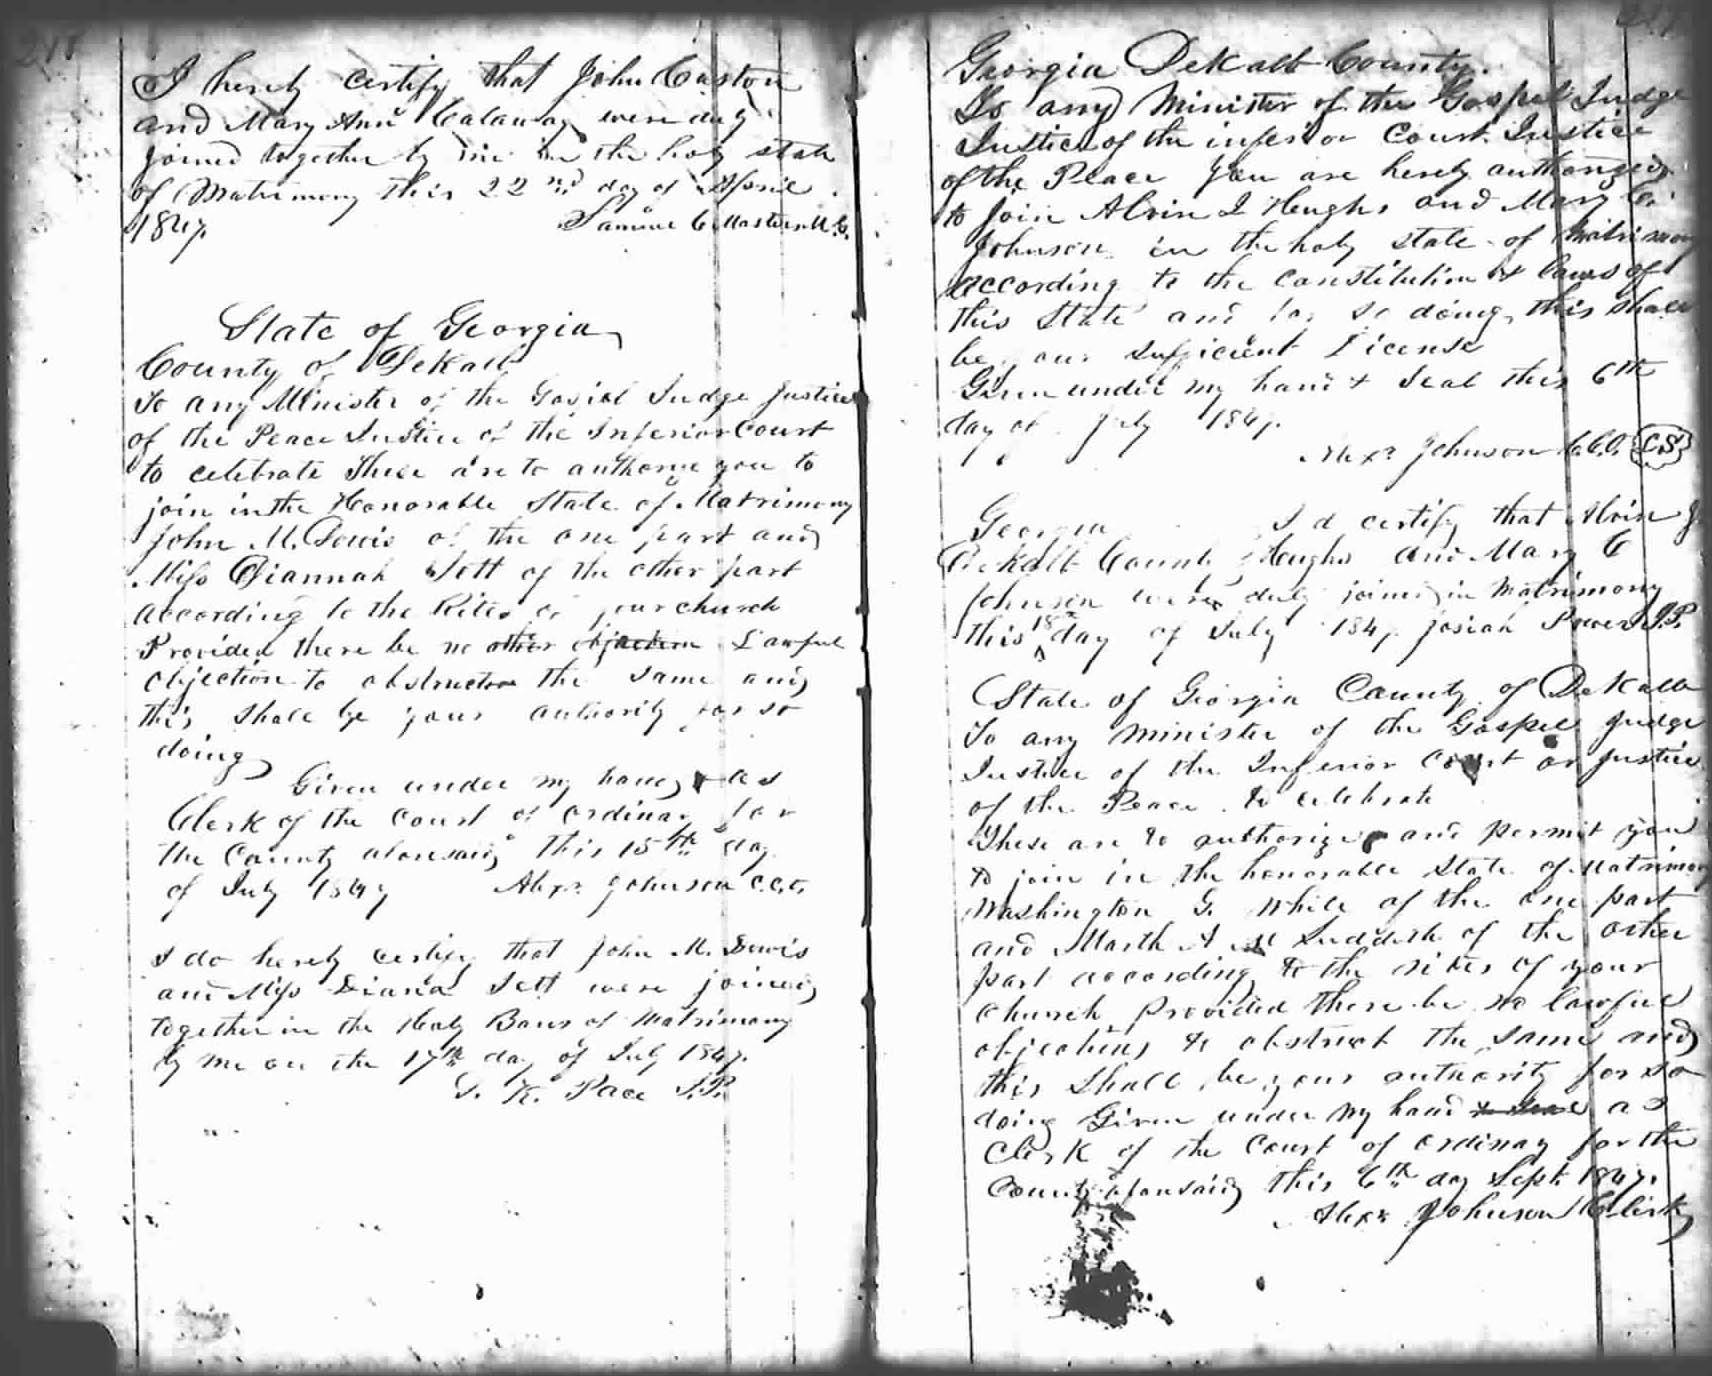 I hereby certify that John Caston
and Mary Ann Calaway were duly
joined together by me in the holy state
of Matrimony this 22nd day of April
1847.
Samuel C Masters M.G.
State of Georgia
County of DeKalb
To any Minister of the Gospel Judge Justice
of the Peace Justice of the Inferior Court
to celebrate These are to authorise you to
join in the Honorable State of Matrimony
John M. Lewis of the one part and
Miss Diannah Jett of the other part
according to the Rites of your church
Provided there be no other objection Lawful
objection to obstruction the same and
this shall be your authority for so
doing
Given under my hand as
Clerk of the Court of ordinary for
the County aforesaid this 15th day
of July 1847 Alexr Johnson C.C.O.
I do hereby certify that John M. Lewis
and Miss Diana Jett were joined
together in the Holy Banes of Matrimony
by me on the 17th day of July 1847.
S. K. Pace J.P.
Georgia DeKalb County.
To any Minister of the Gospel Judge
Justice of the inferior Court Justice
of the Peace you are hereby authorized
to Join Alvin J Hughs and Mary C.
Johnson in the holy state of Matrimony
according to the constitution & laws of
this State and for so doing this shall
be your sufficient License
Given under my hand & Seal this 6th
day of July 1847.
Alexr Johnson C.C.O. L.S
Georgia I d certify that Alvin J
DeKalb County Hughs and Mary C
Johnson were duly joined in Matrimony
this 18th day of July 1847. Josiah Power J.P.
State of Georgia County of DeKalb
To any minister of the Gospel Judge
Justice of the Inferior Court or Justice
of the Peace to celebrate
These are to authorize and permit you
to join in the honorable State of Matrimony
Washington G. White of the one part
and Marth A M Suddeth of the other
part according to the rites of your
church provided there be no lawful
objections to obstruct the same and
this shall be your authority for so
doing Given under my hand & seal as
Clerk of the Court of ordinary for the
County aforesaid this 6th day Sept 1847.
Alexr Johnson Clerk